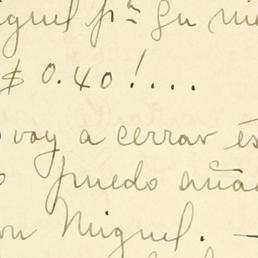 iguel pr. su mi
$ 0.40!....
voy a cerrar és
puedo aña
on Miguel. —